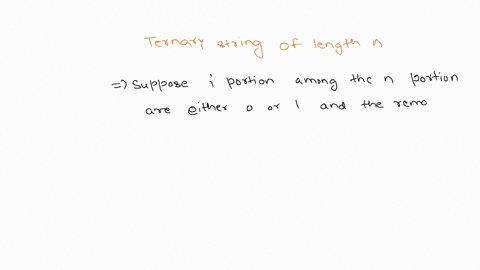 Ternary string of length n
=> Suppose i portion among the n portion
are either 0 or 1 and the remo